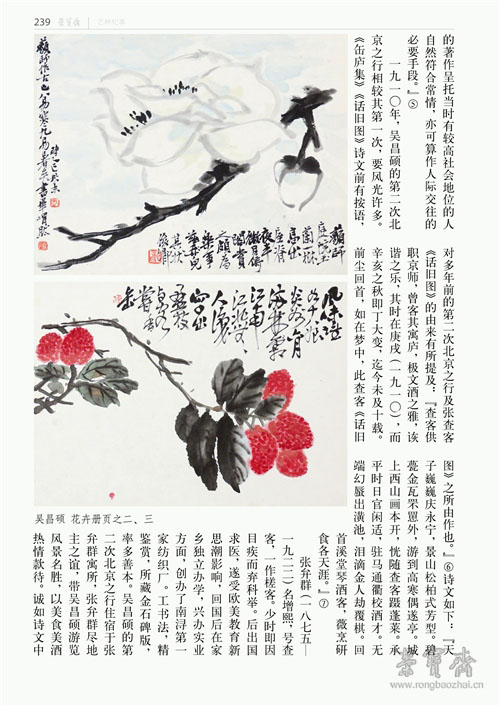 239
荣宝斋
艺林纪事
的著作呈托当时有较高社会地位的人
自然符合常情，亦可算作人际交往的
必要手段。』⑤
一九一〇年，吴昌硕的第二次北
京之行相较其第一次，要风光许多。
《缶庐集》《话旧图》诗文前有按语，
对多年前的第二次北京之行及张查客
《话旧图》的由来有所提及：『查客供
职京师，曾客其寓庐，极文酒之雅，诙
谐之乐，其时在庚戌（一九一〇），而
辛亥之秋即丁大变，迄今未及十载。
前尘回首，如在梦中，此查客《话旧
图》之所由作也。』⑥诗文如下：『天
子巍巍庆永宁，景山松柏式芳型。碧
甍金瓦罘罳外，游到高寒偶遂亭。城
上西山画本开，恍随查客蹑蓬莱。承
平时日官闲适，驻马通衢校酒才。无
端幻蜃出潢池，泪滴金人劫覆棋。回
首溪堂琴酒客，薇烹研
食各天涯。』⑦
张弁群（一八七五—
一九二二）名增熙，号查
客，一作楂客。少时即因
目疾而弃科举。后出国
求医，遂受欧美教育新
思潮影响，回国后在家
乡独立办学，兴办实业
方面，创办了南浔第一
家纺织厂。工书法，精
鉴赏，所藏金石碑版，
率多善本。吴昌硕的第
二次北京之行住宿于张
弁群寓所，张弁群尽地
主之谊，带吴昌硕游览
风景名胜，以美食美酒
热情款待。诚如诗文中
吴昌硕 花卉册页之二、三
荣宝斋
www.rongbaozhai.cn